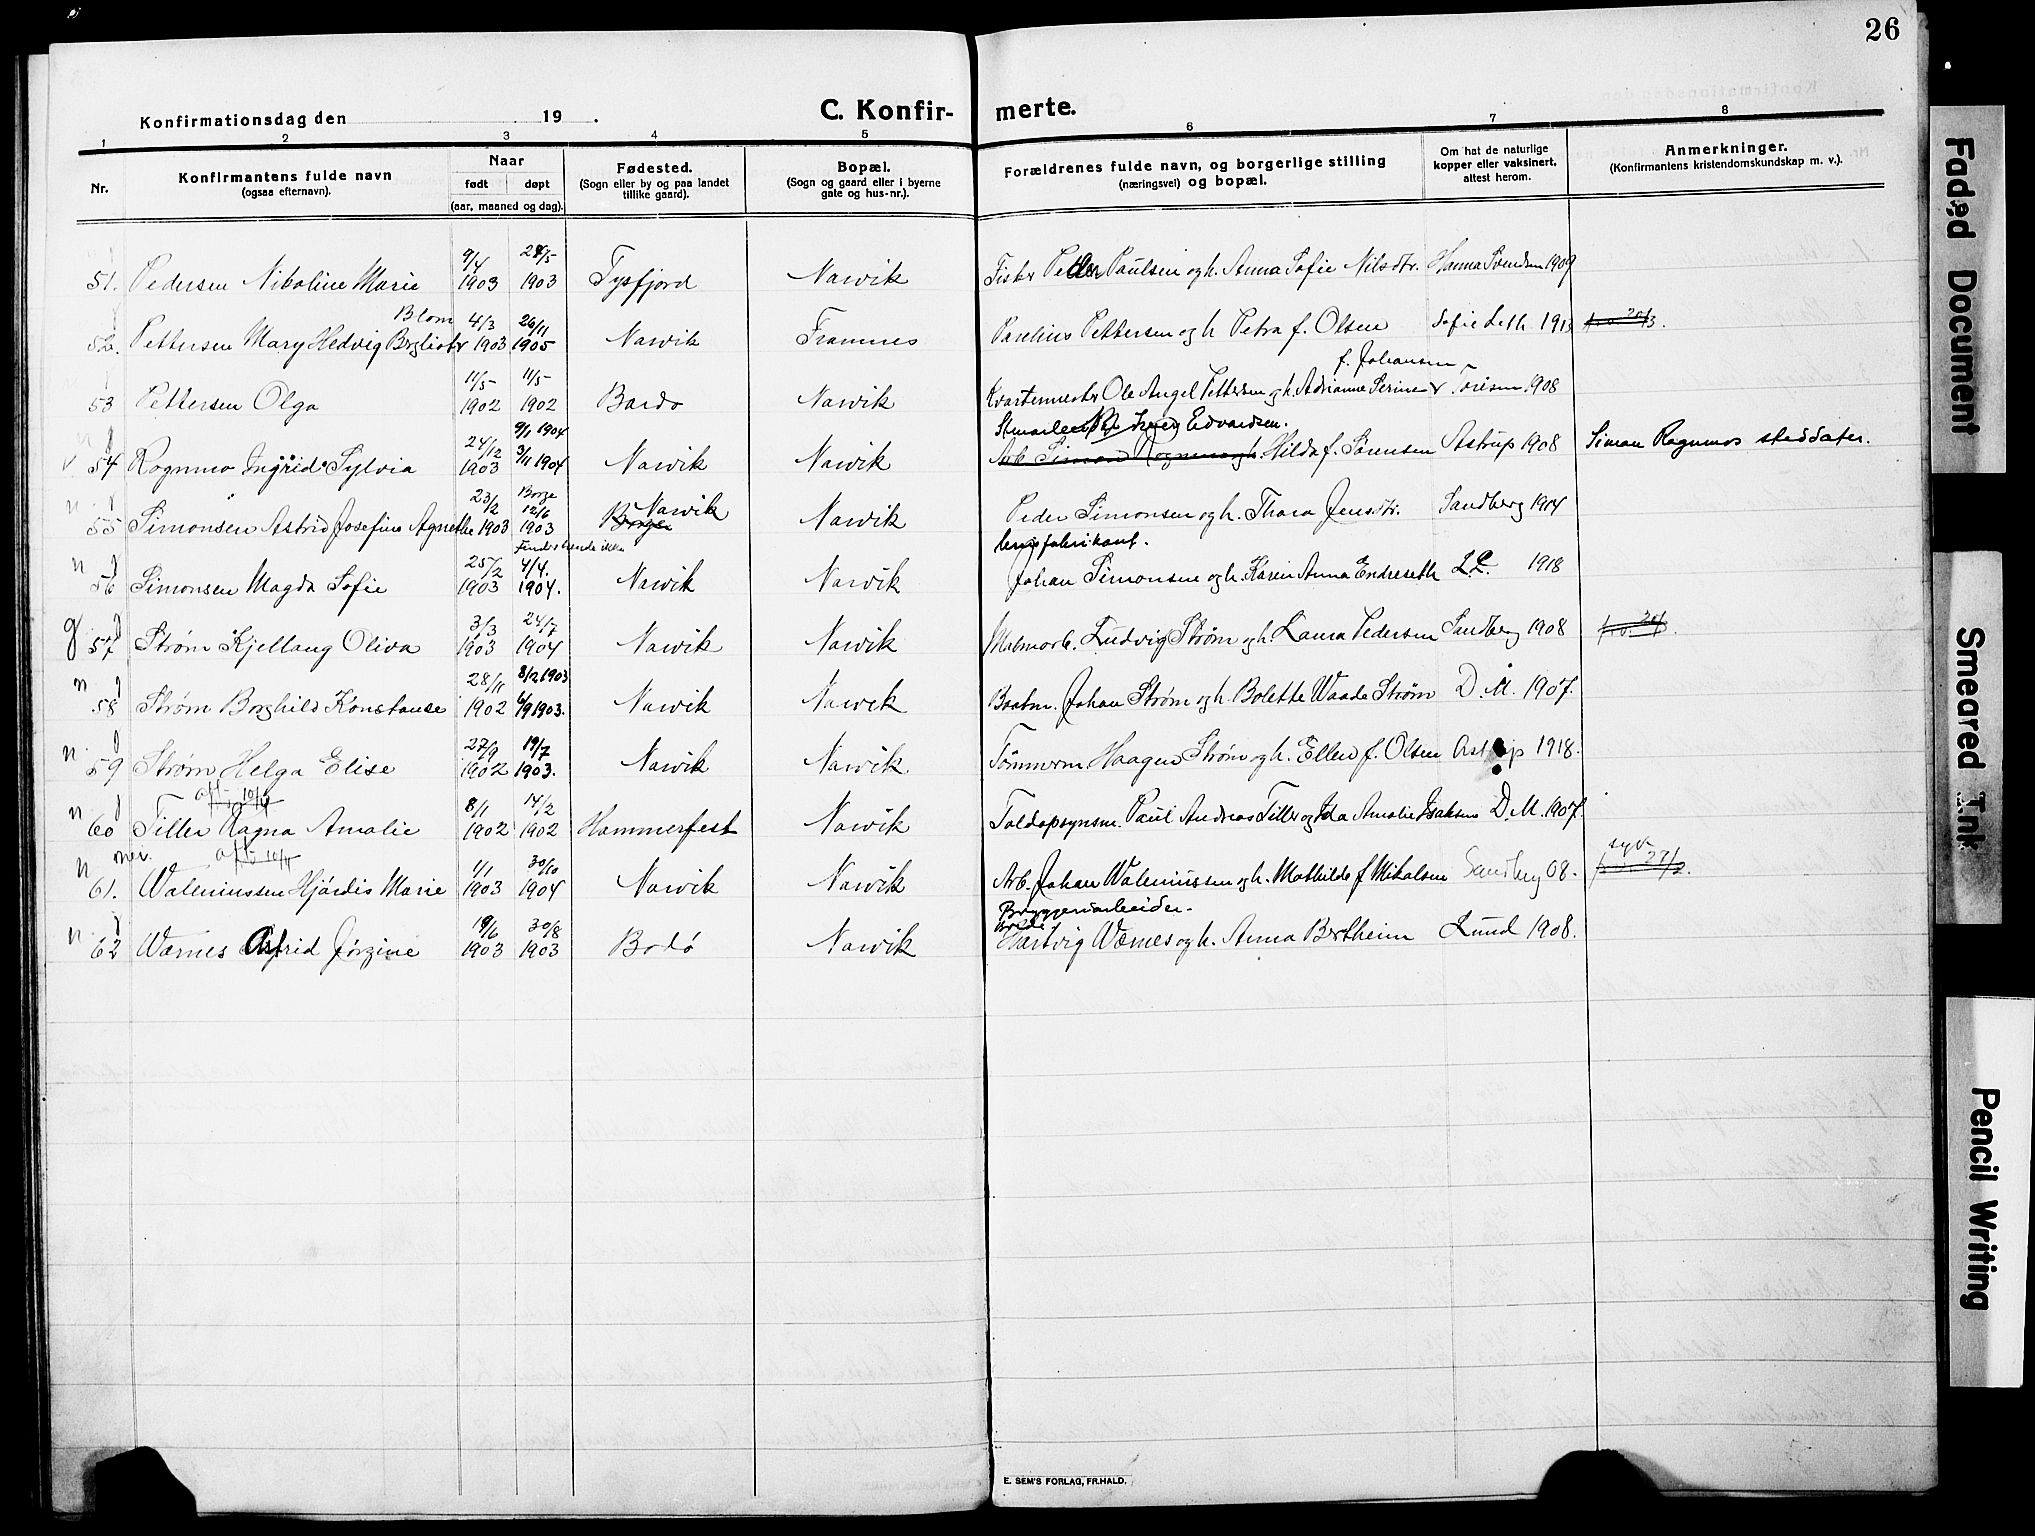 26
Konfirmationsdag den 19 .
C. Konfir- merte.
1 2 3 4 5 6 7 8
Nr.
Konfirmantens fulde navn
(ogsaa efternavn).
Naar
født døpt
(aar, maaned og dag).
Fødested.
(Sogn eller by og paa landet
tillike gaard).
Bopæl.
(Sogn og gaard eller i byerne
gate og hus-nr.).
Forældrenes fulde navn, og borgerlige stilling
(næringsvei) og bopæl.
Om hat de naturlige
kopper eller vaksinert,
attest herom.
Anmerkninger.
(Konfirmantens kristendomskundskap m. v.).
9/4 24/5
51. Pedersen Nikoline Marie 1903 1903 Tysfjord Narvik Fisker Peder Paulsen og h. Anna Sofie Nilsdtr. Hanna Svendsen 1909
Blom 4/3 26/11
52. Pettersen Mary Hedvig Bergliot 1903 1905 Narvik Framnes Paulius Pettersen og h Petra f. Olsen Sofie Leth 1913
f. Johansen
11/5 11/5
53 Pettersen Olga 1902 1902 Bardo Narvik Kvartermester Ole Angel Pettersen og h. Adrianne Serine 1908
9/1 1904
Edvardsen.
24/12
54 Rognmo Ingrid Sylvia 1903 9/11 1904 Narvik Narvik Arb. Simon Rognmo og h. Hilda f. Sørensen Astrup 1908 Simon Rognmos steddater.
23/2 Borge 12/6 Narvik
55 Simonsen Astrid Josefine Agnethe 1903 1903 Borge Narvik Peder Simonsen og h. Thora Jensdtr. Sandberg 1904
Findes hende ikke
25/2 4/4.
56 Simonsen Magda Sofie 1903 1904. Narvik Narvik Johan Simonsen og h. Karen Anna Endreseth L.L. 1918
3/3 24/7
57 Strøm Kjellaug Oliva 1903 1904 Narvik Narvik Malmarb. Ludvig Strøm og h. Laura Pedersen Sandberg 1908
28/11 8/12 1903
58 Strøm Borghild Konstanse 1902 6/9 1903. Narvik Narvik Baatm. Johan Strøm og h. Bolette Waade Strøm D. M. 1907.
27/9 19/7
59 Strøm Helga Elise 1902 1903. Narvik Narvik Tömmerm Haagen Strøm og h. Ellen f. Olsen Astrup 1918.
8/1 14/2
60 Tiller Ragna Amalie 1902 1902 Hammerfest Narvik Toldopsynsm. Paul Andreas Tiller og Ida Amalie Isaksen D. M. 1907.
1/1 30/10
61. Waleniussen Hjördis Marie 1903 1904 Narvik Narvik Arb. Johan Waleniussen og h. Mathilde f Mikalsen Sandberg 08.
Bryggeriarbeider.
19/6 30/8
62 Wærnes Astrid Jørgine 1903 1903 Bodö Narvik Hartvig Wærnes og h. Anna Bertheim Lund 1908.
E. SEM'S FORLAG, FR.HALD.
Faded Document
Smeared Ink
Pencil Writing